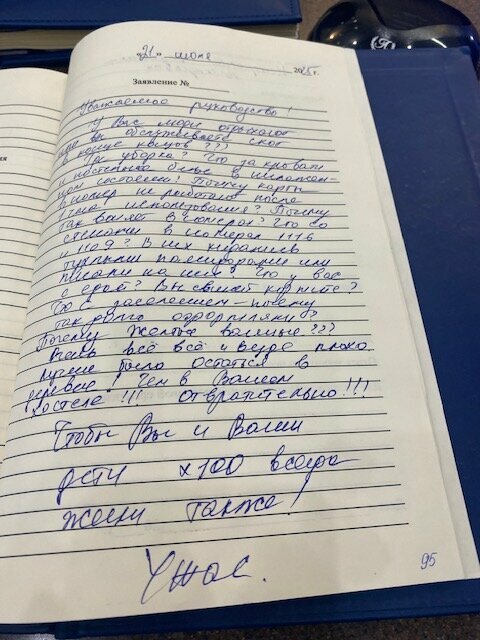 «21» июля 2025г.
Заявление №
Уважаемое руководство!
У Вас люди отдыхают
или вы обслуживаете скот
в конце концов???
Где уборка? Что за кровати
и постельное белье в
состоянии! Почему карты
в номер не работают после
1 дня использования? Почему
так воняет в номерах? Что со
стенами в номерах 1116
и 1109? В них кидались
тухлыми помидорами или
писали на них? Что у вас
с едой? Вы свиней кормите?
Что с заселением – почему
так долго оформляли?
Почему желтые ванные???
Очень всё всё и везде плохо
лучше было остаться в
деревне! Чем в Вашем
хостеле!!! Отвратительно!!!
Чтобы Вы и Ваши
дети x100 всегда
жили также!
Ужас.
95